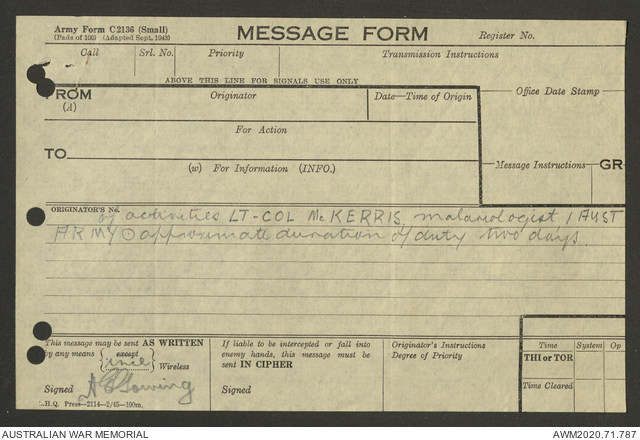 Army Form C2136 (Small)
(Pads of 100) (Adapted Sept. 1943)
MESSAGE FORM
Register No.
Call Srl. No. Priority Transmission Instructions
ABOVE THIS LINE FOR SIGNALS USE ONLY
FROM
(A)
Originator
Date—Time of Origin
Office Date Stamp
For Action
TO
(w) For Information (INFO.)
Message Instructions GR
ORIGINATOR'S No.
of activities LT-COL McKERRIS malariologist 1 AUST
ARMY ⊙ approximate duration of duty two days.
This message may be sent AS WRITTEN
by any means except Wireless
Signed
L.H.Q. Press—2114—2/45—100m.
If liable to be intercepted or fall into
enemy hands, this message must be
sent IN CIPHER
Signed
Originator's Instructions
Degree of Priority
Time System Op
THI or TOR
Time Cleared
AUSTRALIAN WAR MEMORIAL
AWM2020.71.787